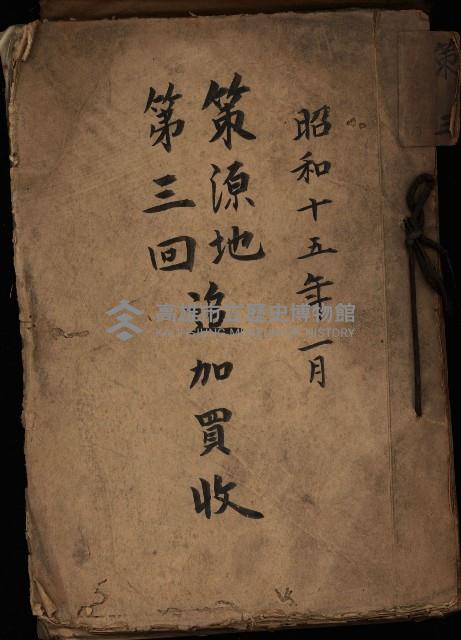 昭和十五年一月
策源地追加買收
第三回
策
三
高雄市立歷史博物館
KAOHSIUNG MUSEUM OF HISTORY